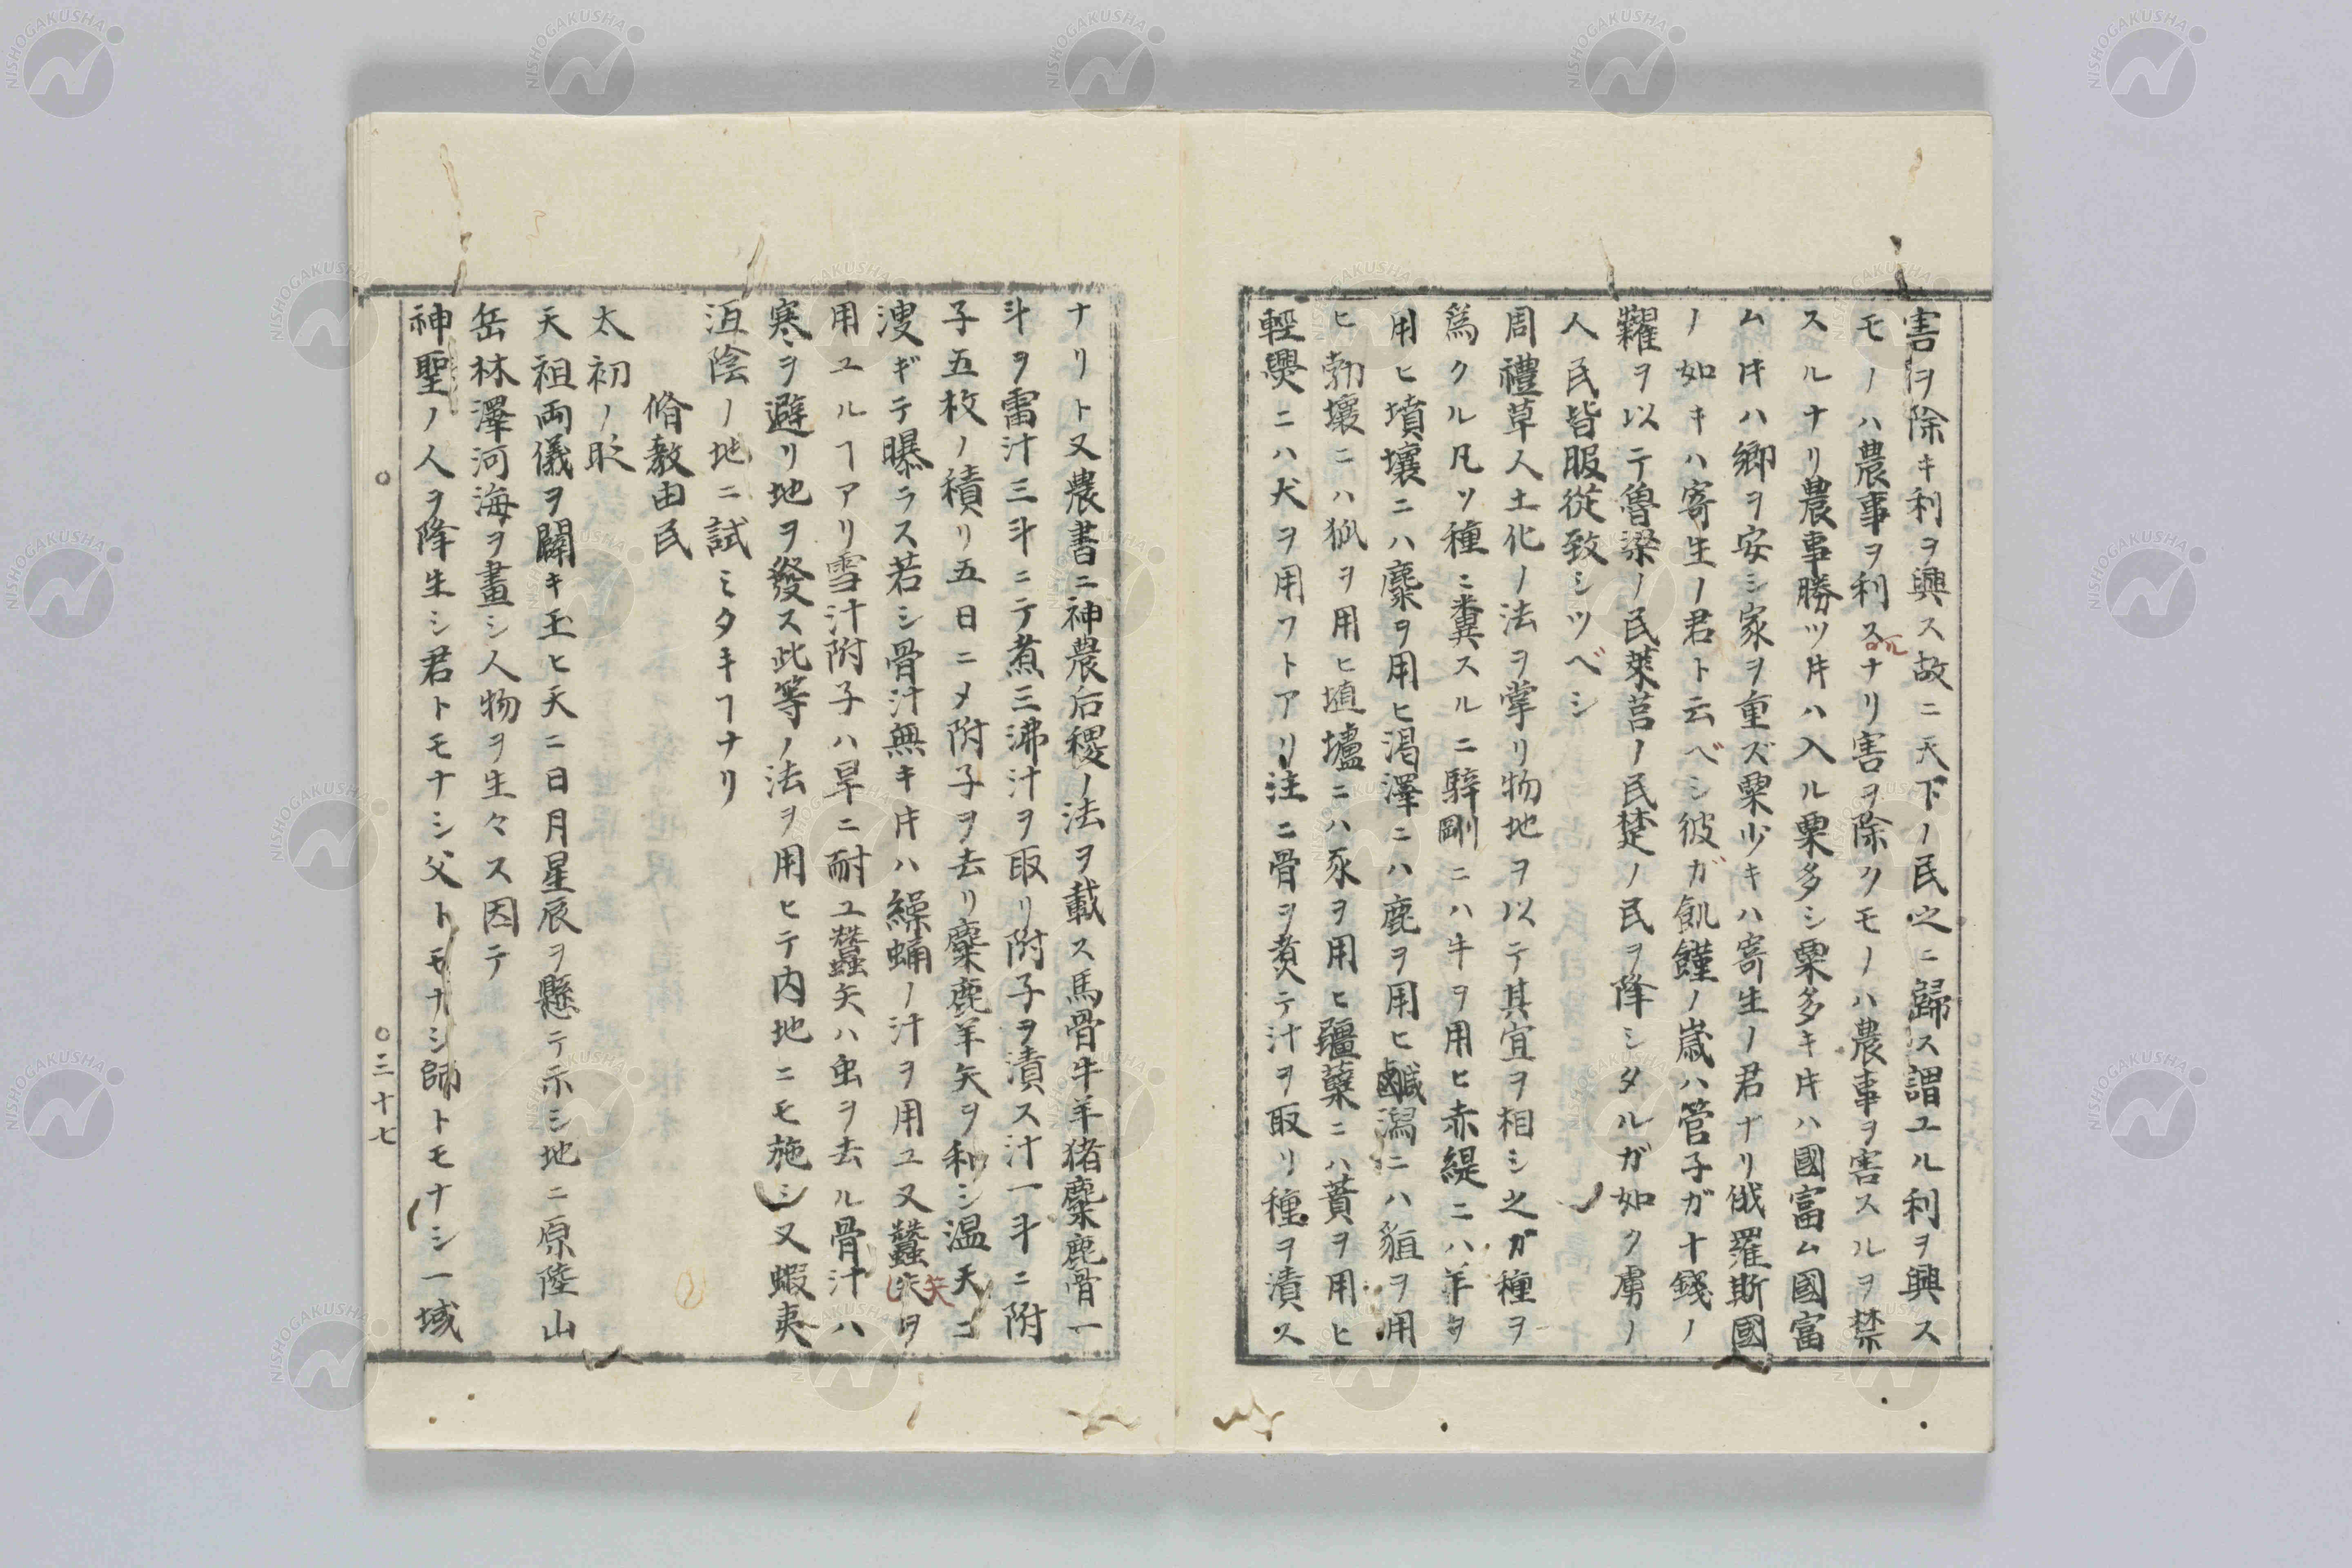 害ヲ除キ利ヲ興ス故ニ天下ノ民之ニ歸ス謂ユル利ヲ興ス
モノハ農事ヲ利スルナリ害ヲ除クモノハ農事ヲ害スルヲ禁
スルナリ農事勝ツ㪽ハ入ル粟多シ粟多キ㪽ハ國富ム國富
ム㪽ハ鄉ヲ安シ家ヲ重ズ粟少キハ寄生ノ君ナリ俄羅斯國
ノ如キハ寄生ノ君ト云ベシ彼ガ飢饉ノ歳ハ管子ガ十錢ノ
糶ヲ以テ魯梁ノ民萊莒ノ民楚ノ民ヲ降シタルガ如ク虜ノ
人民皆服從致シツベシ
周禮草人土化ノ法ヲ掌リ物地ヲ以テ其宜ヲ相シ之ガ種ヲ
爲クル凡ソ種ニ糞スルニ騂剛ニハ牛ヲ用ヒ赤緹ニハ羊ヲ
用ヒ墳壤ニハ麋ヲ用ヒ渴澤ニハ鹿ヲ用ヒ鹹潟ニハ貆ヲ用
ヒ勃壤ニハ狐ヲ用ヒ埴壚ニハ豕ヲ用ヒ疆㯺ニハ蕡ヲ用ヒ
輕爂ニハ犬ヲ用フトアリ注ニ骨ヲ煑テ汁ヲ取リ種ヲ漬ス
ナリト又農書ニ神農后稷ノ法ヲ載ス馬骨牛羊猪麋鹿骨一
斗ヲ雪汁三斗ニテ煮三沸汁ヲ取リ附子ヲ漬ス汁一斗ニ附
子五枚ノ積リ五日ニメ附子ヲ去リ麋鹿羊矢ヲ和シ温天ニ
溲ギテ曝ラス若シ骨汁無キ㪽ハ繰蛹ノ汁ヲ用ユ又蠶矢ヲ
用ユルヿアリ雪汁附子ハ旱ニ耐ユ蠶矢ハ虫ヲ去ル骨汁ハ
寒ヲ避リ地ヲ發ス此等ノ法ヲ用ヒテ内地ニモ施シ又蝦夷
沍陰ノ地ニ試ミタキヿナリ
脩敎由民
太初ノ㫝
天祖両儀ヲ闢キ玉ヒ天ニ日月星辰ヲ懸テ示シ地ニ原陸山
岳林澤河海ヲ畫シ人物ヲ生々ス因テ
神聖ノ人ヲ降生シ君トモナシ父トモナシ師トモナシ一域
〇 〇三十七